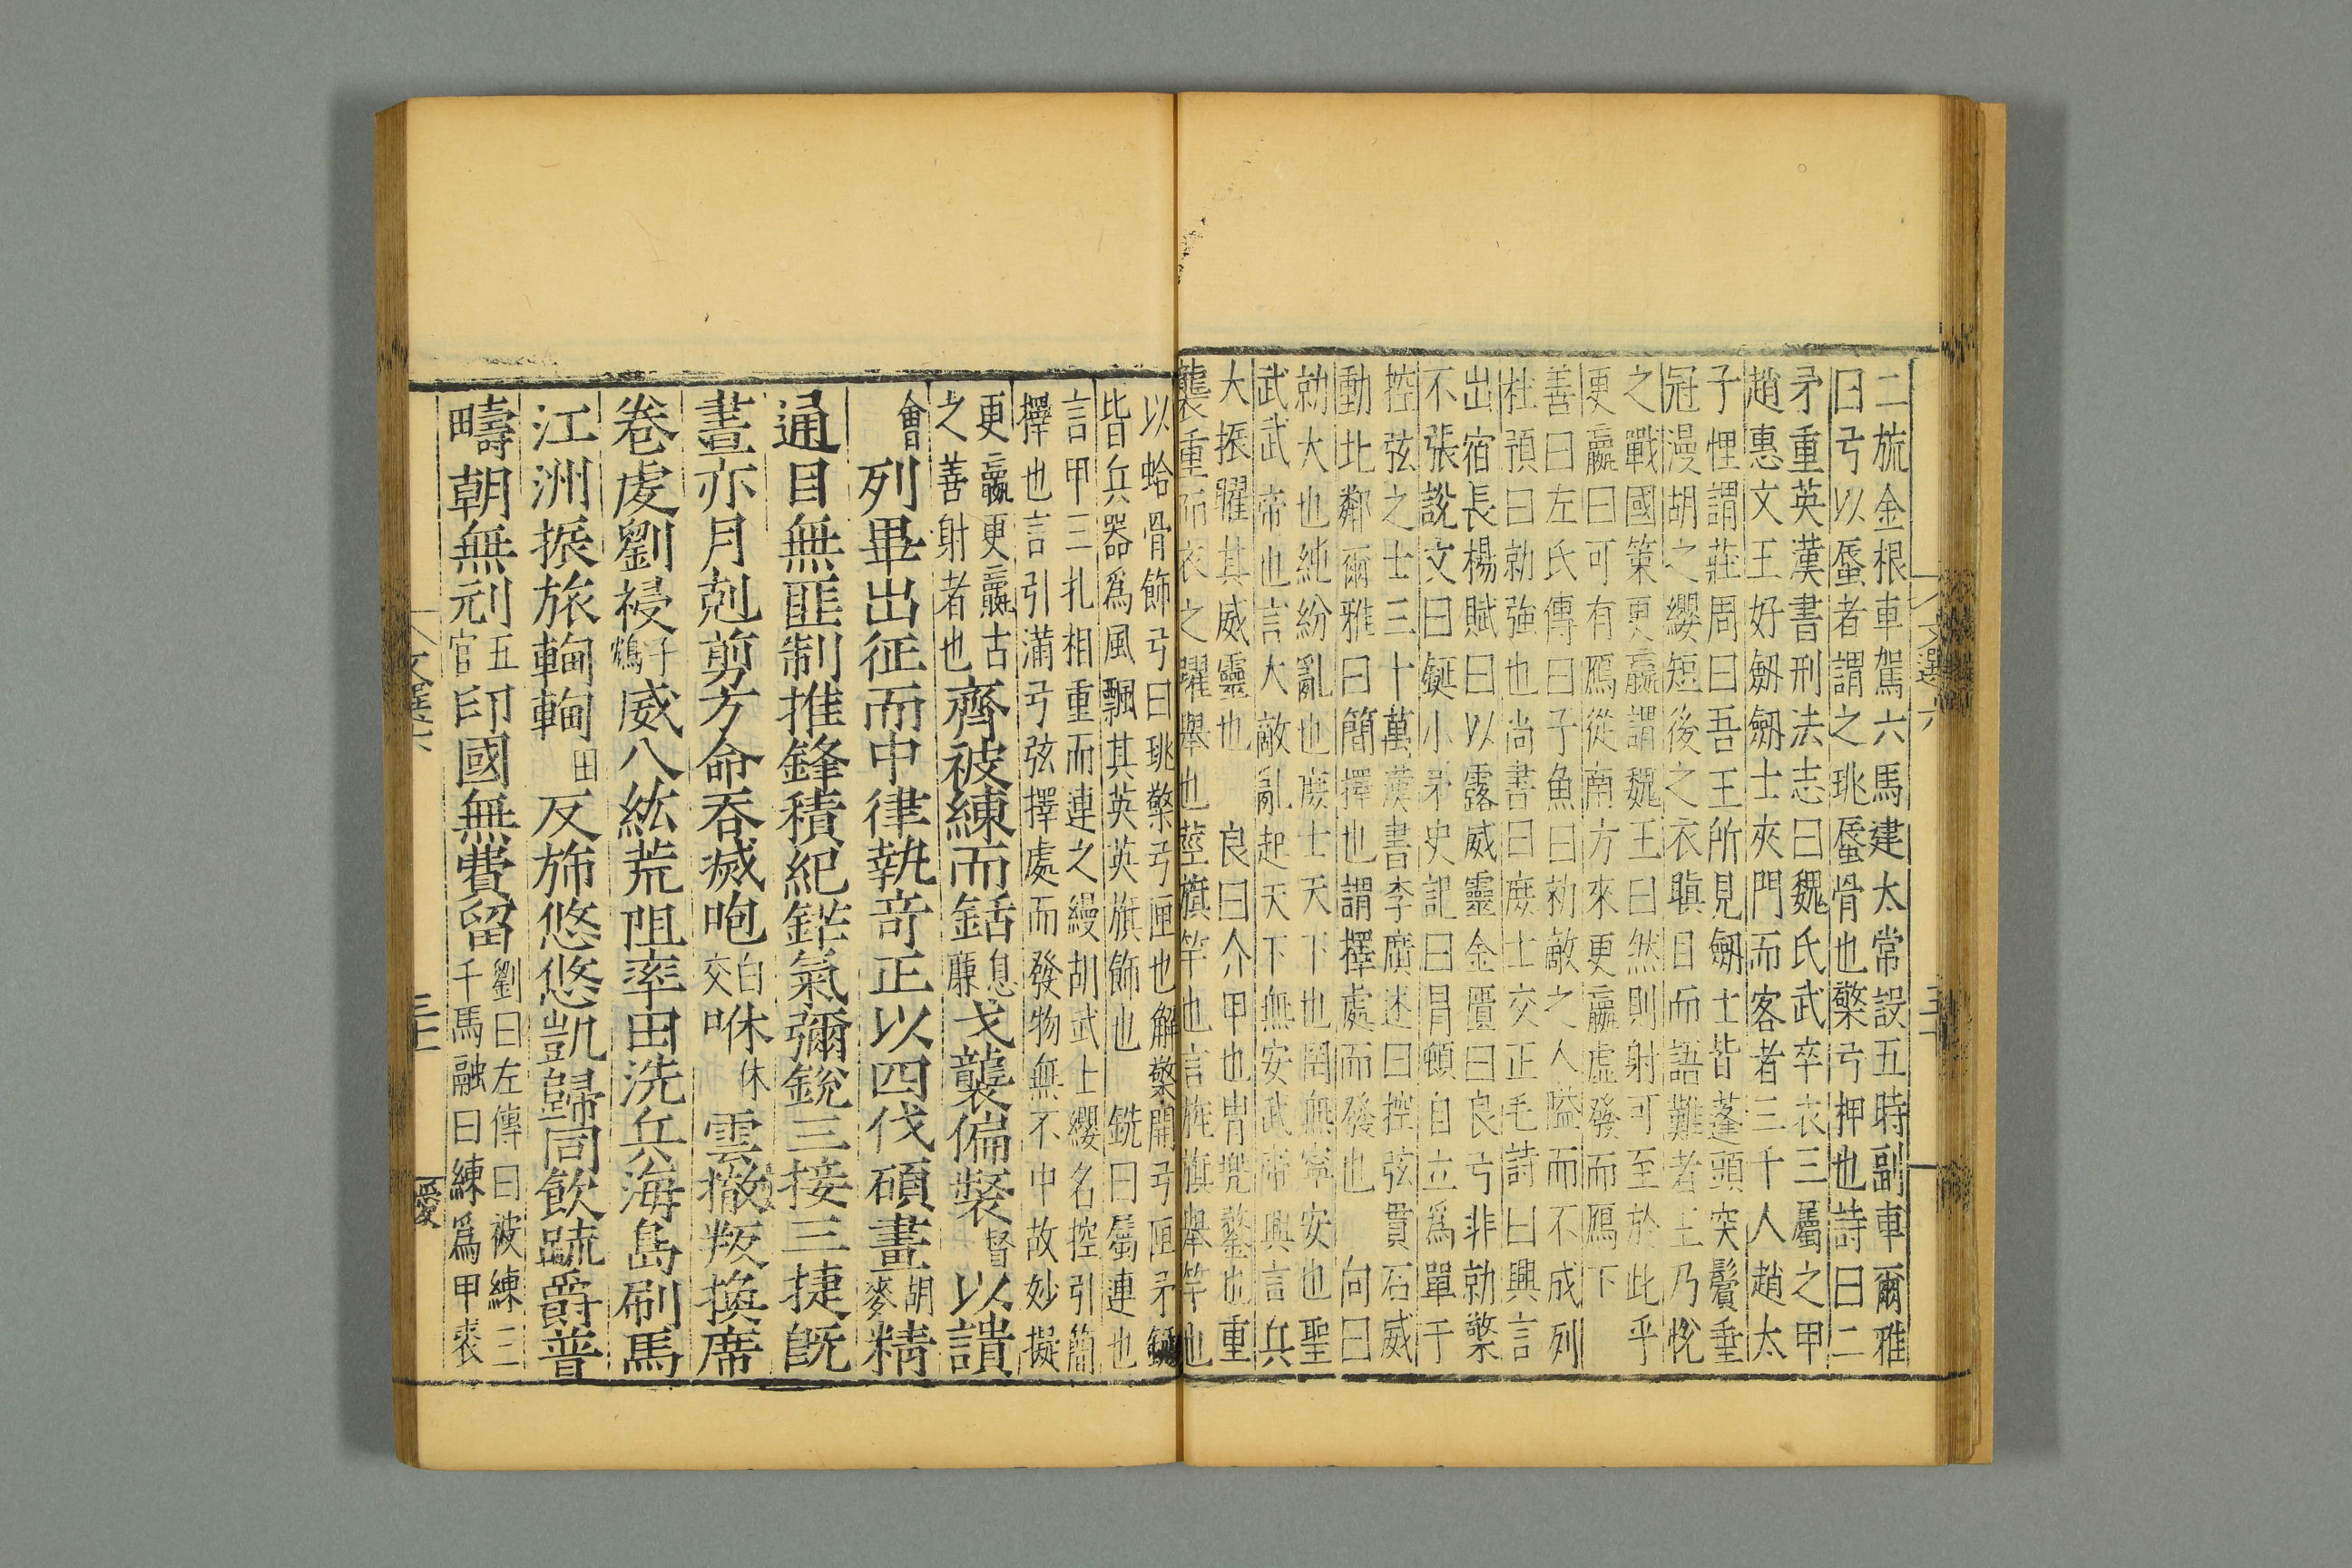 二旒金根車駕六馬建太常設五時副車爾雅
曰弓以蜃者謂之珧蜃骨也檠弓押也詩曰二
矛重英漢書刑法志曰魏氏武卒衣三屬之甲
趙惠文王好劒劒士夾門而客者三千人趙太
子悝謂莊周曰吾王所見劒士皆蓬頭突鬢垂
冠漫胡之纓短後之衣瞋目而語難者王乃悅
之戰國策更羸謂魏王曰然則射可至於此乎
更羸曰可有鴈從南方來更羸虛發而鴈下
善曰左氏傳曰子魚曰勍敵之人隘而不成列
杜預曰勍強也尚書曰庶士交正毛詩曰興言
出宿長楊賦曰以露威靈金匱曰良弓非勍檠
不張說文曰鋋小矛史記曰冒頓自立爲單于
控弦之士三十萬漢書李廣述曰控弦貫石威
動北鄰爾雅曰簡擇也謂擇處而發也 向曰
勍大也純紛亂也庶士天下也罔無寧安也聖
武武帝也言大敵亂起天下無安武帝興言兵
大振躍其威靈也 良曰介甲也冑兜鍪也重
襲重而衣之躍舉也莖旗竿也言旄旗舉竿也
以蛤骨飾弓曰珧檠弓匣也解檠開弓匣矛鋋
皆兵器爲風飄其英英旗飾也 銑曰屬連也
言甲三扎相重而連之縵胡武士纓名控引簡
擇也言引滿弓弦擇處而發物無不中故妙擬
更羸更羸古
之善射者也
齊被練而銛
息廉
戈襲偏裻
督
以讃
會
列畢出征而中律執竒正以四伐碩畫
胡麥
精
通目無匪制推鋒積紀鋩氣彌銳三接三捷旣
晝亦月剋剪方命吞滅咆
白交
咻
休
雲撤叛換席
卷虔劉祲
子鴆
威八紘荒阻率由洗兵海島刷馬
江洲振旅輷輷
田
反斾悠悠凱歸同飲䟽爵普
疇朝無刓
五官
印國無費留
劉曰左傳曰被練三
千馬融曰練爲甲裘
文選六
三十
文選六
三十一